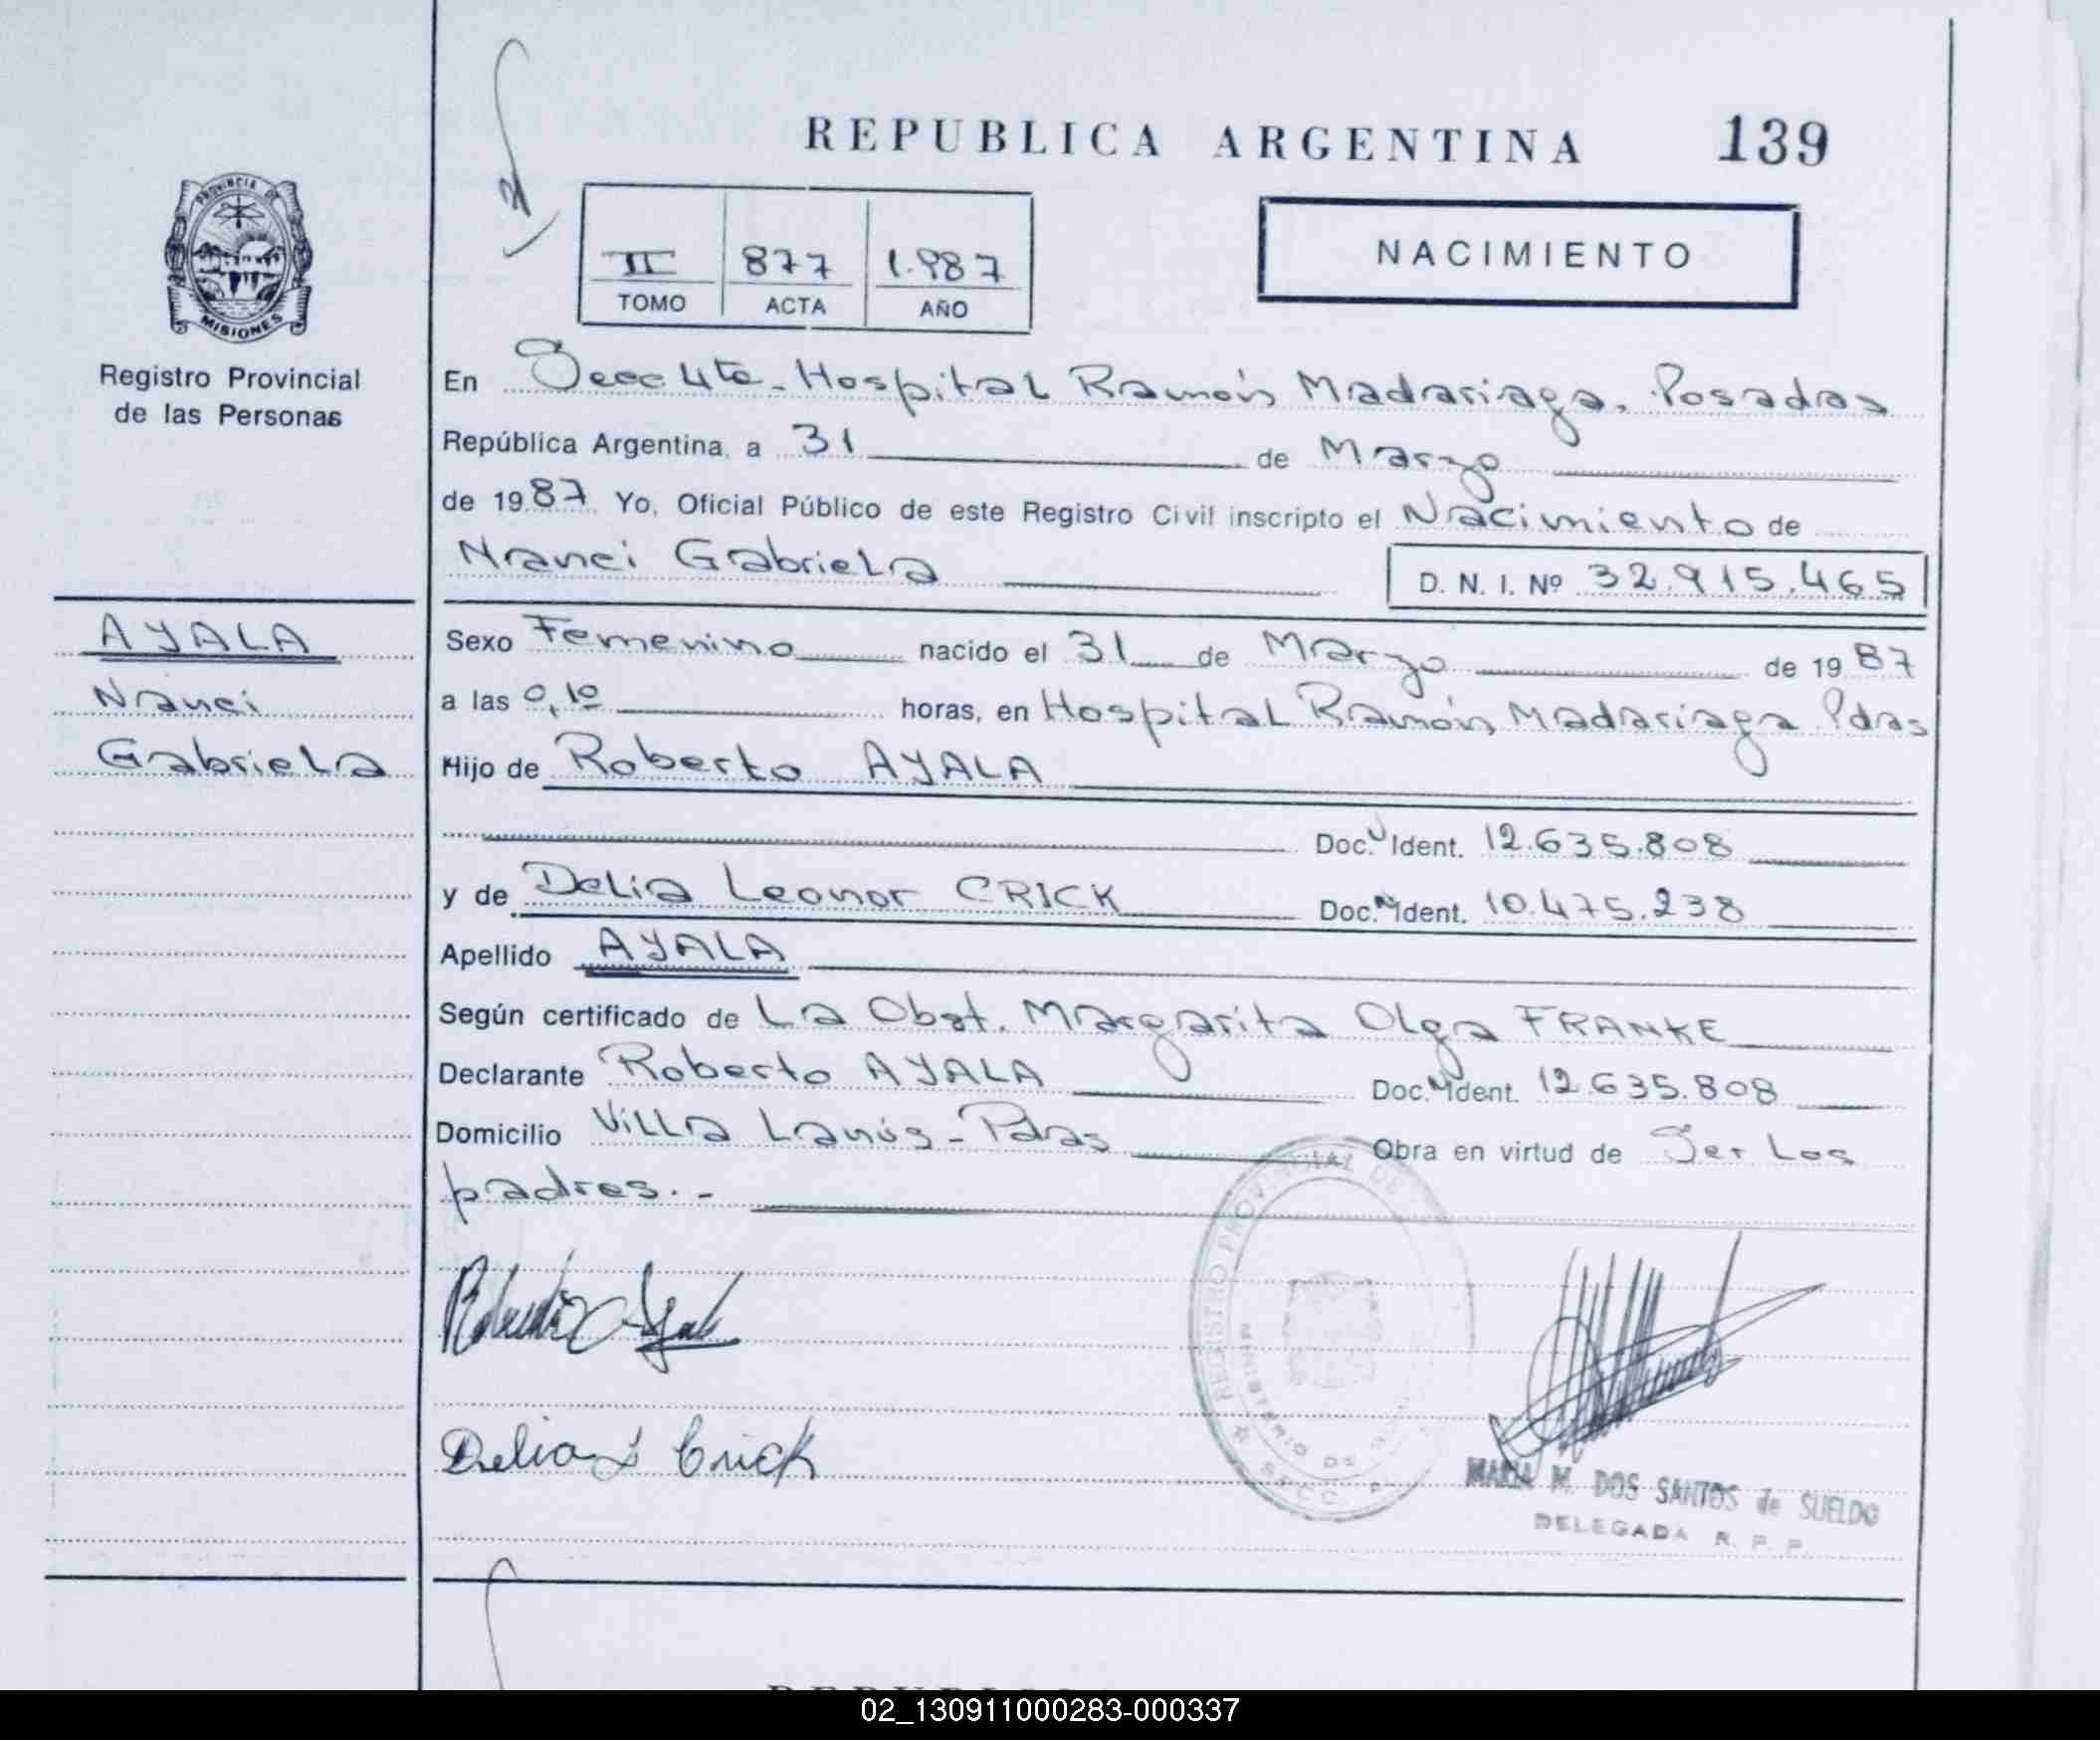 REPUBLICA ARGENTINA 139
PROVINCIA DE
MISIONES
Registro Provincial
de las Personas
II 877 1.987
TOMO ACTA AÑO
NACIMIENTO
En Secc 4ta - Hospital Ramón Madariaga. Posadas
República Argentina, a 31 de Marzo
de 1987 Yo, Oficial Público de este Registro Civil inscripto el Nacimiento de
Nanci Gabriela D. N. I. Nº 32.915.465
AYALA
Nanci
Gabriela
Sexo Femenino nacido el 31 de Marzo de 1987
a las 0,10 horas, en Hospital Ramón Madariaga Pdas
Hijo de Roberto AYALA
Doc. Ident. 12.635.808
y de Delia Leonor CRICK Doc. Ident. 10.475.238
Apellido AYALA
Según certificado de La Obst. Margarita Olga FRANKE
Declarante Roberto AYALA Doc. Ident. 12.635.808
Domicilio Villa Lanús - Pdas Obra en virtud de Ser Los
padres. -
REGISTRO PROVINCIAL DE
MINISTERIO DE
SECC
Delia L Crick
MARIA M. DOS SANTOS de SUELDO
DELEGADA R. P. P.
02_130911000283-000337